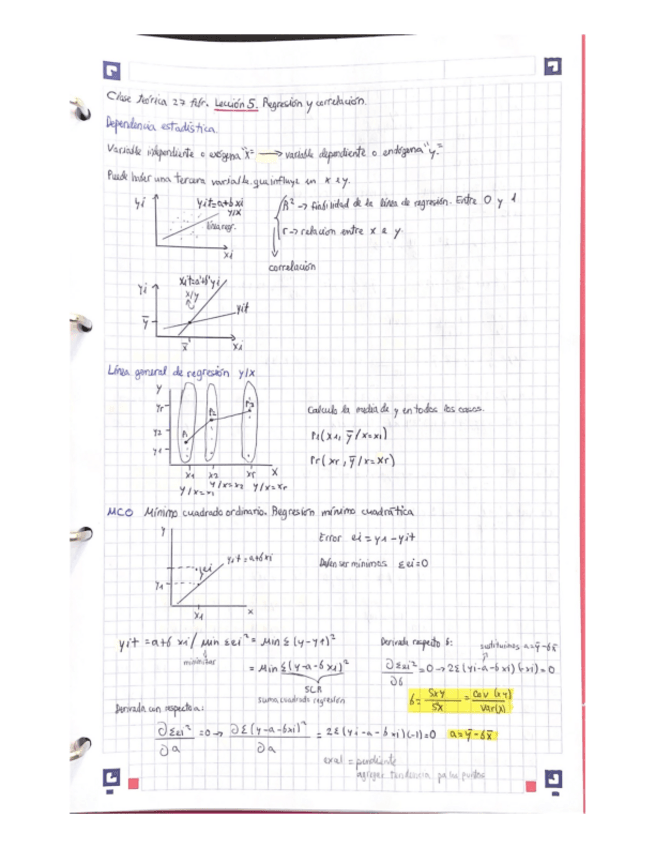 Clase teórica 27 febr. Lección 5. Regresión y correlación.
Dependencia estadística.
Variable independiente o exógena "x" → variable dependiente o endógena "y"
Puede haber una tercera variable que influye en x e y.
yi
yit=a+bxi
y/x
línea regr.
xi
R² → fiabilidad de la línea de regresión. Entre 0 y 1
r → relación entre x e y.
correlación
yi
xit=a'+b'yi
x/y
yit
ȳ
x̄
x1
Línea general de regresión y/x
y
yr
y2
y1
x1 x2 xr x
y/x=x1 y/x=x2 y/x=xr
Calculo la media de y en todos los casos.
P1(x1, ȳ/x=x1)
Pr(xr, ȳ/x=xr)
MCO Mínimo cuadrado ordinario. Regresión mínimo cuadrática
y
yit=a+bxi
ei
y1
x1
x
Error ei = y1 - yit
Deben ser mínimos Σei=0
yit = a+b xi / min Σei² = Min Σ(y-y1)²
minimizar
= Min Σ(y-a-b x1)²
SCR
suma cuadrado regresión
Derivada respecto b:
sustituimos a=ȳ-bx̄
∂Σei²/∂b = 0 → 2Σ(yi-a-bx1)(-x1)=0
b = Sxy/Sx = cov(xy)/var(x)
Derivada con respecto a:
∂Σei²/∂a = 0 → ∂Σ(y-a-bxi)²/∂a = 2Σ(yi-a-bxi)(-1)=0 a=ȳ-bx̄
= pendiente
agregar tendencia puntos